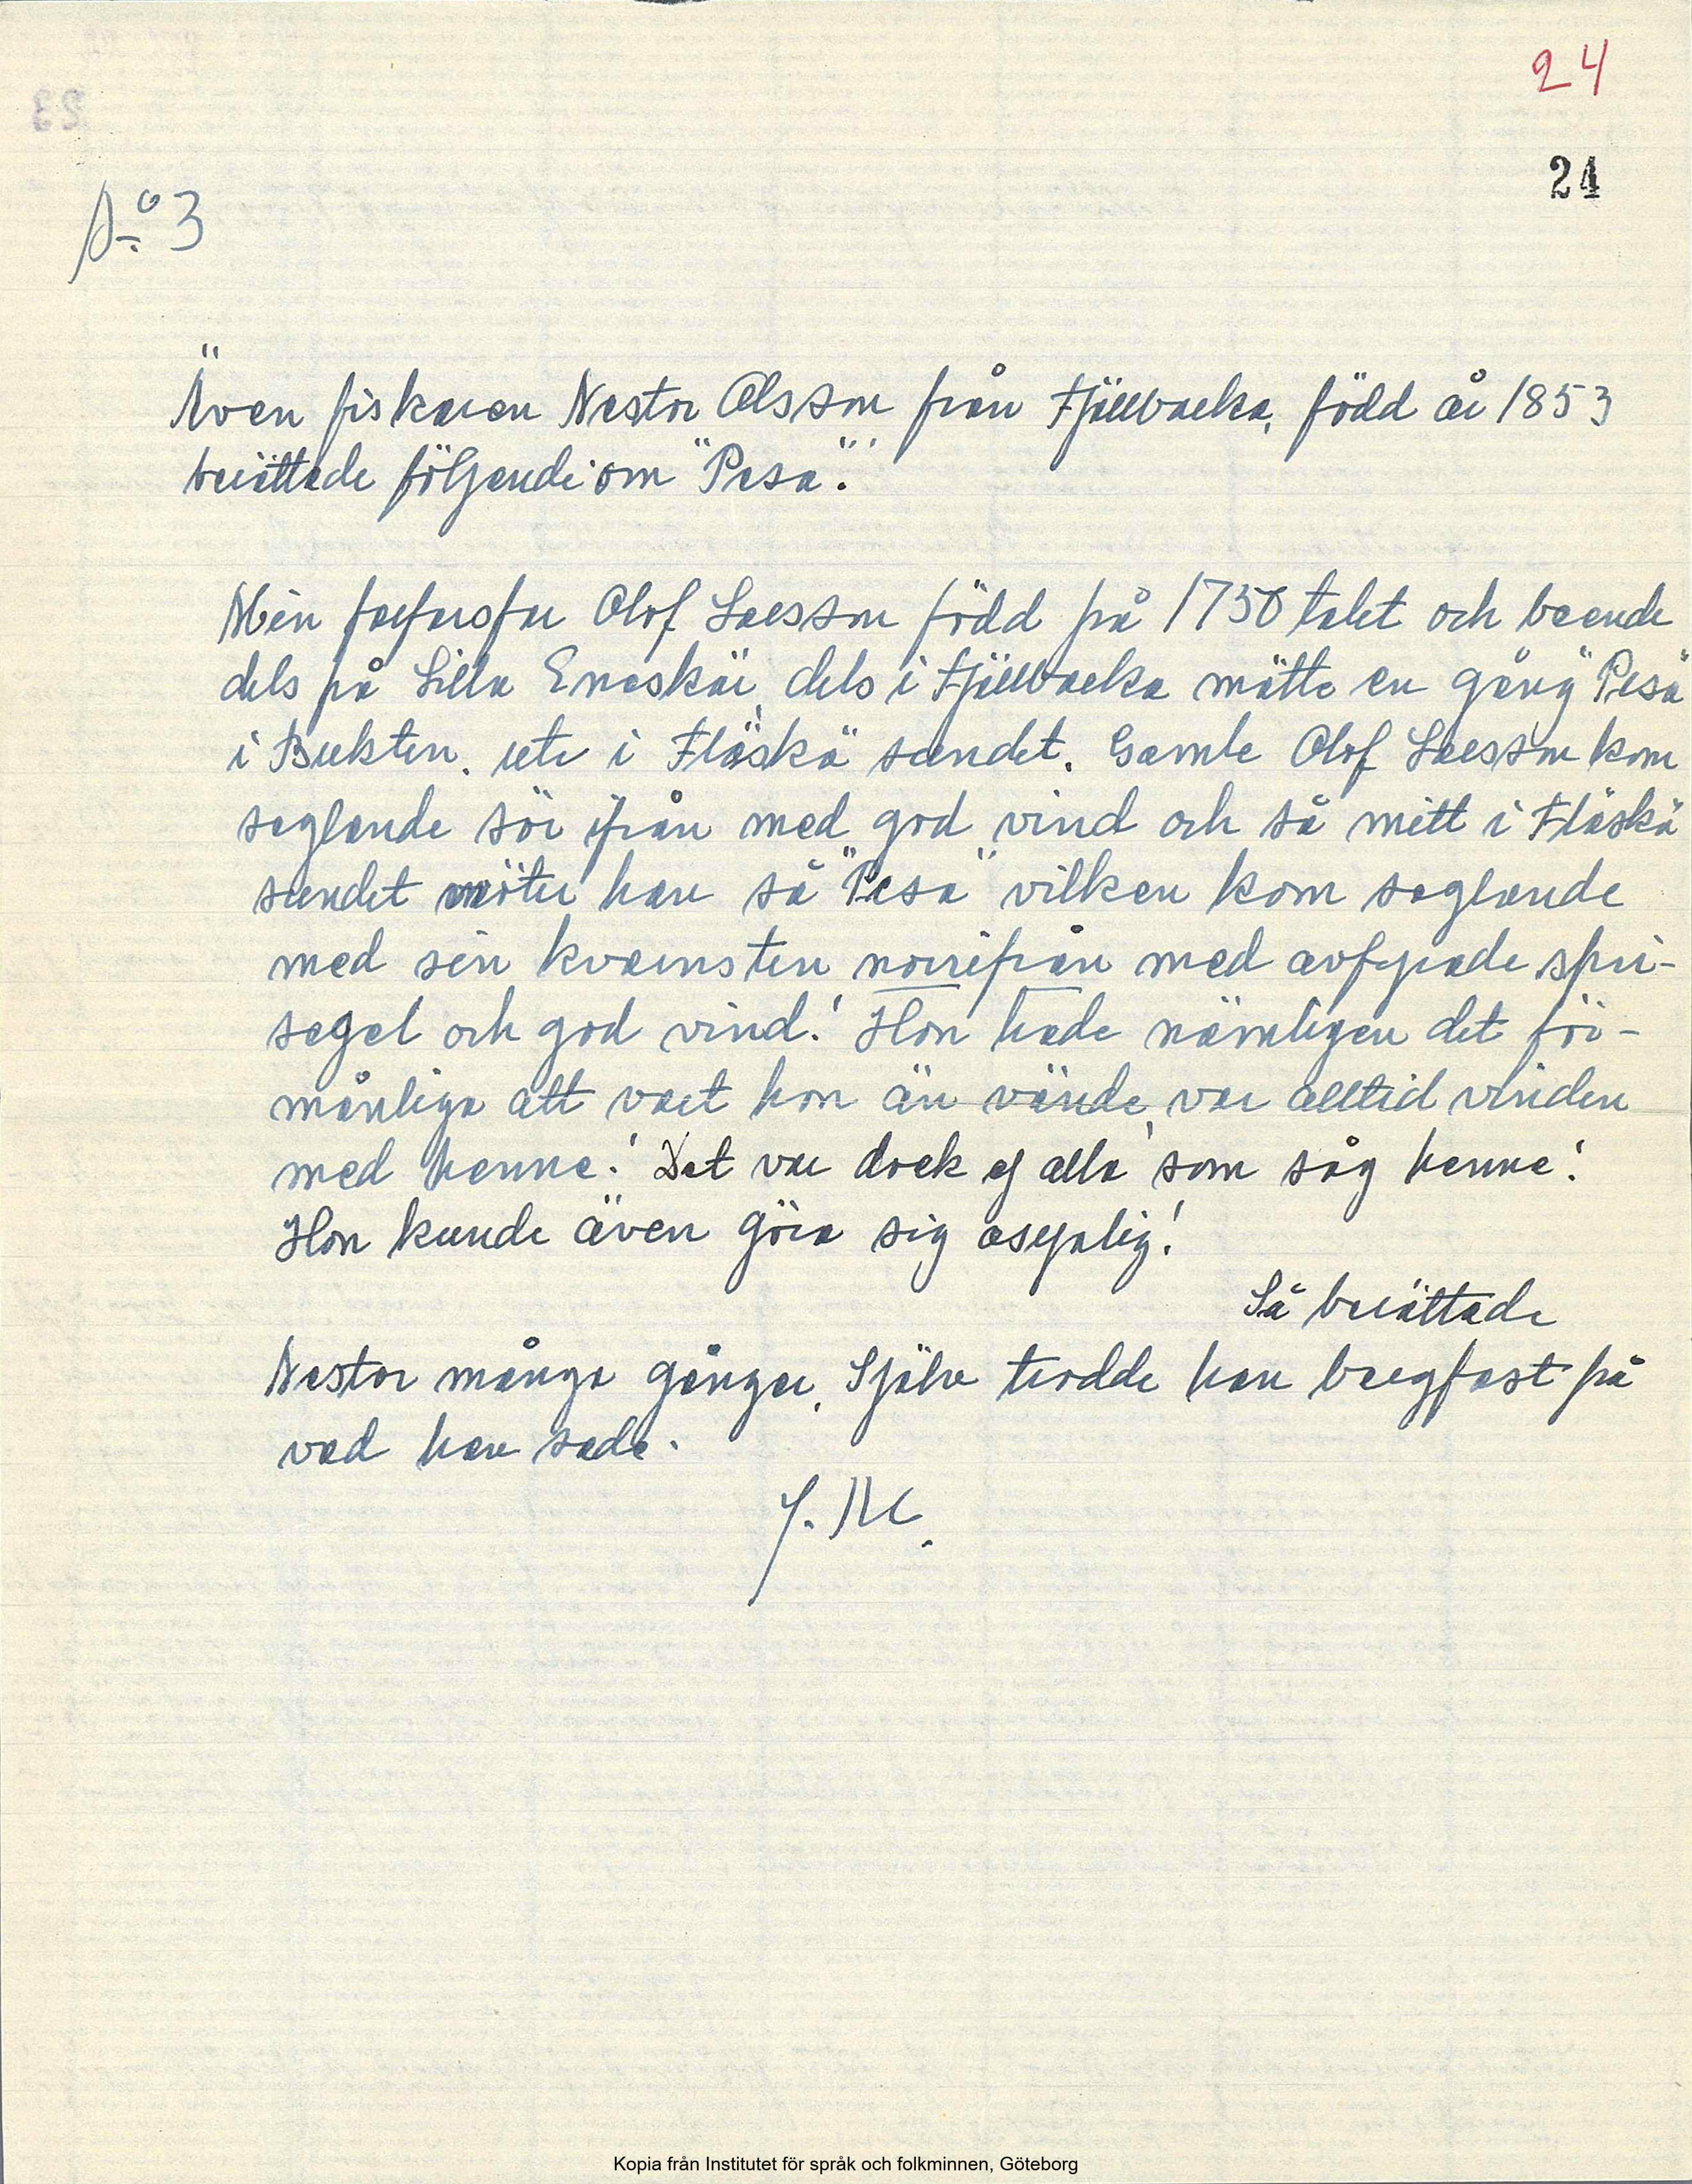 24
24
No 3
Även fiskaren Nestor Olsson från Fjällbacka, född år 1853
berättade följande om "Pesa".
Min farfarsfar Olof Larsson född på 1750 talet och boende
dels på Lilla Eneskär, dels i Fjällbacka mötte en gång "Pesa"
i Bukten, ute i Fläskö sundet. Gamle Olof Larsson kom
seglande sör ifrån med god vind och så mitt i Fläskö
sundet möter han så "Pesa" vilken kom seglande
med sin kvarnsten norrifrån med avfyrade spri-
segel och god vind! Hon hade nämligen det för-
månliga att vart hon än vände, var alltid vinden
med henne! Det var dock ej alla som såg henne!
Hon kunde även göra sig osynlig!
Så berättade
Nestor många gånger. Själv trodde han bergfast på
vad han sade.
J. M.
Kopia från Institutet för språk och folkminnen, Göteborg